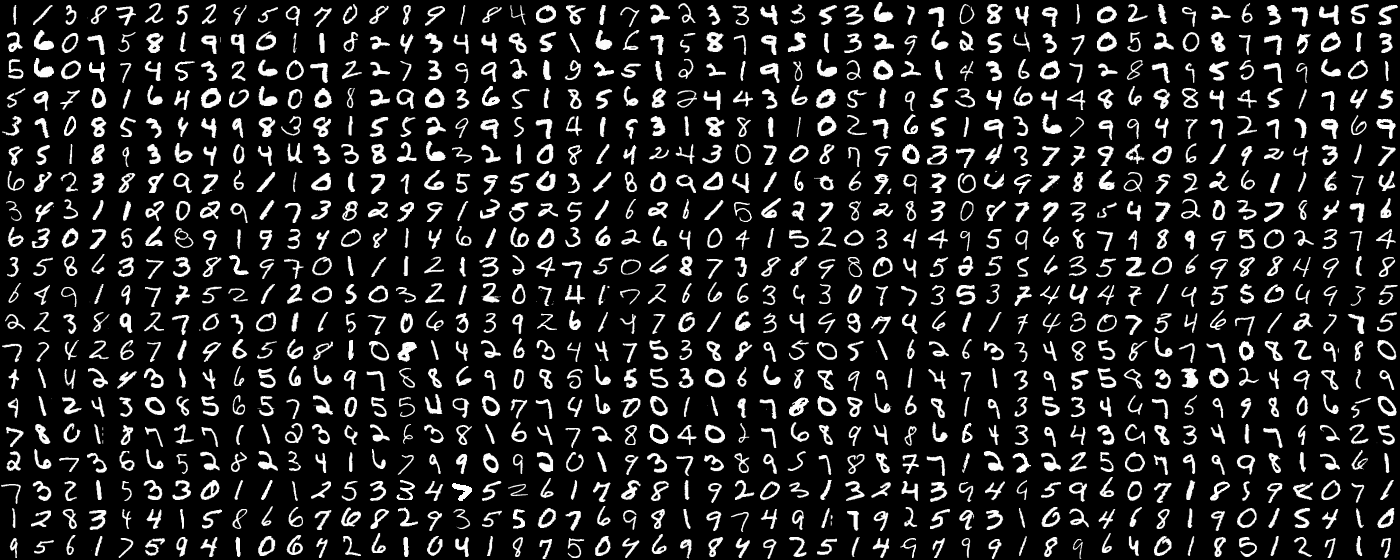 1 1 3 8 7 2 5 2 8 5 9 7 0 8 8 9 1 8 4 0 8 1 7 2 2 3 3 4 3 5 3 6 7 7 0 8 4 9 1 0 2 1 9 2 6 3 7 4 5 5
2 6 0 7 5 8 1 9 9 0 1 1 8 2 4 3 4 4 8 5 1 6 6 7 5 8 7 9 5 1 3 2 9 6 2 5 4 3 7 0 5 2 0 8 7 7 5 0 1 3
5 6 0 4 7 4 5 3 2 6 0 7 2 2 7 3 9 9 2 1 9 2 5 1 2 2 1 9 8 6 2 0 2 1 4 3 6 0 7 2 8 7 9 5 5 7 9 6 0 1
5 9 7 0 1 6 4 0 0 6 0 0 8 2 9 0 3 6 5 1 8 5 6 8 2 4 4 3 6 0 5 1 9 5 3 4 6 4 4 8 6 8 8 4 4 5 1 7 4 5
3 7 0 8 5 3 4 4 9 8 3 8 1 5 5 2 9 9 5 7 4 1 5 3 1 8 8 1 1 0 2 7 6 5 1 9 3 6 7 9 9 4 7 7 2 7 7 9 6 9
8 5 1 8 9 3 6 4 0 4 4 3 3 8 2 6 3 2 1 0 8 1 4 2 4 3 0 7 0 8 7 9 0 3 7 4 3 7 7 9 4 0 6 1 9 2 4 3 1 7
6 8 2 3 8 8 9 7 6 1 1 0 1 7 1 6 5 9 5 0 3 1 8 0 9 0 4 1 6 0 6 9 9 3 0 4 9 7 8 6 2 9 2 2 6 1 1 6 7 4
3 4 3 1 1 2 0 2 9 1 7 3 8 2 9 9 1 3 5 2 5 1 6 2 1 1 5 6 2 7 8 2 8 3 0 8 7 7 3 5 4 7 2 0 3 7 8 4 7 6
6 3 0 7 5 6 8 9 1 9 3 4 0 8 1 4 6 1 6 0 3 6 2 6 4 0 4 1 5 2 0 3 4 4 9 5 9 6 8 7 4 8 9 9 5 0 2 3 7 4
3 5 8 6 3 7 3 8 2 9 7 0 1 1 1 2 1 3 2 4 7 5 0 6 8 7 3 8 8 9 8 0 4 5 2 5 5 6 3 5 2 0 6 9 8 8 4 9 1 8
6 4 9 1 9 7 7 5 2 1 2 0 5 0 3 2 1 2 0 7 4 1 7 2 6 6 6 3 6 3 0 7 7 3 5 3 7 4 4 4 7 1 4 5 5 0 4 9 3 5
2 2 3 8 9 2 7 0 3 0 1 1 5 7 0 6 3 3 9 2 6 1 4 7 0 1 6 3 4 9 9 7 4 6 1 1 7 4 3 0 7 5 4 6 7 1 2 7 7 5
7 7 4 2 6 7 1 9 6 5 6 8 1 0 8 1 4 2 6 3 4 4 7 5 3 8 8 9 5 0 5 1 6 2 6 3 3 4 8 5 8 6 7 7 0 8 2 9 8 0
4 1 4 2 4 3 1 4 6 5 6 6 9 7 8 8 6 9 0 8 5 6 5 5 3 0 6 6 8 8 9 9 1 4 7 1 3 9 5 5 8 3 3 0 2 4 9 8 1 9
4 1 2 4 3 0 8 5 6 5 7 2 0 5 5 4 9 0 7 7 4 6 7 0 0 1 1 9 7 8 0 8 6 6 8 1 9 3 5 3 4 4 7 5 9 9 8 0 6 5 0
7 8 0 1 8 7 1 7 1 1 2 3 9 2 6 3 8 1 6 4 7 2 8 0 4 0 2 7 6 8 9 4 8 6 6 4 3 9 4 3 9 8 3 4 1 7 9 2 2 5
2 6 7 3 6 6 5 2 8 2 3 4 1 6 7 9 9 0 9 2 0 1 9 3 7 3 8 9 5 7 8 8 7 7 1 2 2 2 2 5 0 7 9 9 9 8 1 2 6 1
7 3 2 1 5 3 3 0 1 1 1 2 5 3 3 4 7 5 2 6 1 7 8 8 1 9 2 0 3 1 3 2 4 3 9 4 9 5 9 6 0 7 1 8 5 9 8 0 7 1
1 2 8 3 4 4 1 5 8 6 6 7 6 8 2 9 3 5 5 0 7 6 9 8 1 9 7 4 9 1 1 7 9 2 5 9 3 1 0 2 4 6 8 1 9 0 1 5 4 1 0
9 5 6 1 7 5 9 4 1 0 6 7 2 6 1 0 4 1 8 7 5 0 7 6 9 8 4 9 2 5 1 4 9 7 9 9 1 8 9 6 4 0 1 8 5 1 2 7 1 7